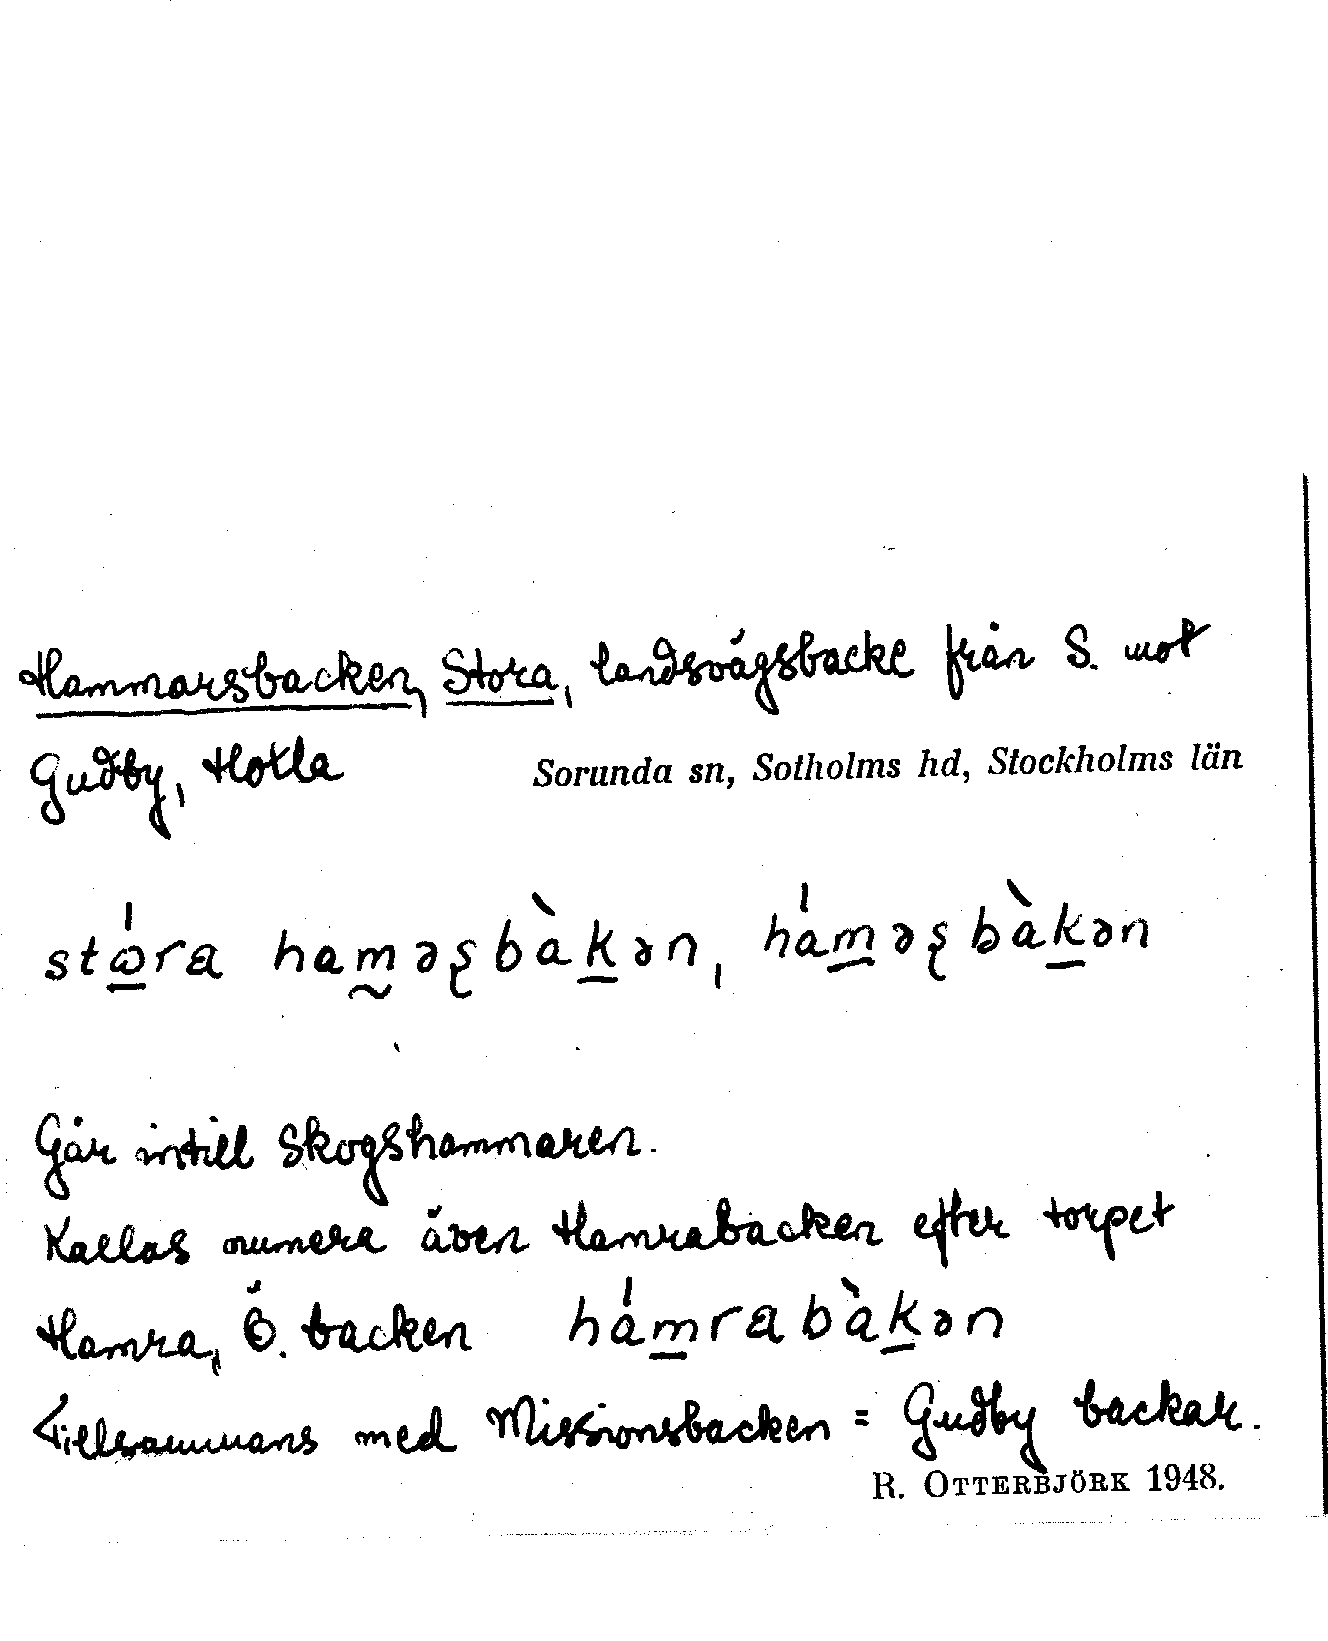 Hammarsbacken, Stora, landsvägsbacke från S. mot
Gudby, Hotla Sorunda sn, Sotholms hd, Stockholms län
stώ̲ra ham̰əʂbàk̲ən, hám̲əʂbàk̲ən
Går intill Skogshammaren.
Kallas numera även Hamrabacken efter torpet
Hamra, Ö. backen hám̲rabàk̲ən
Tillsammans med Missionsbacken = Gudby backar.
R. OTTERBJÖRK 1948.